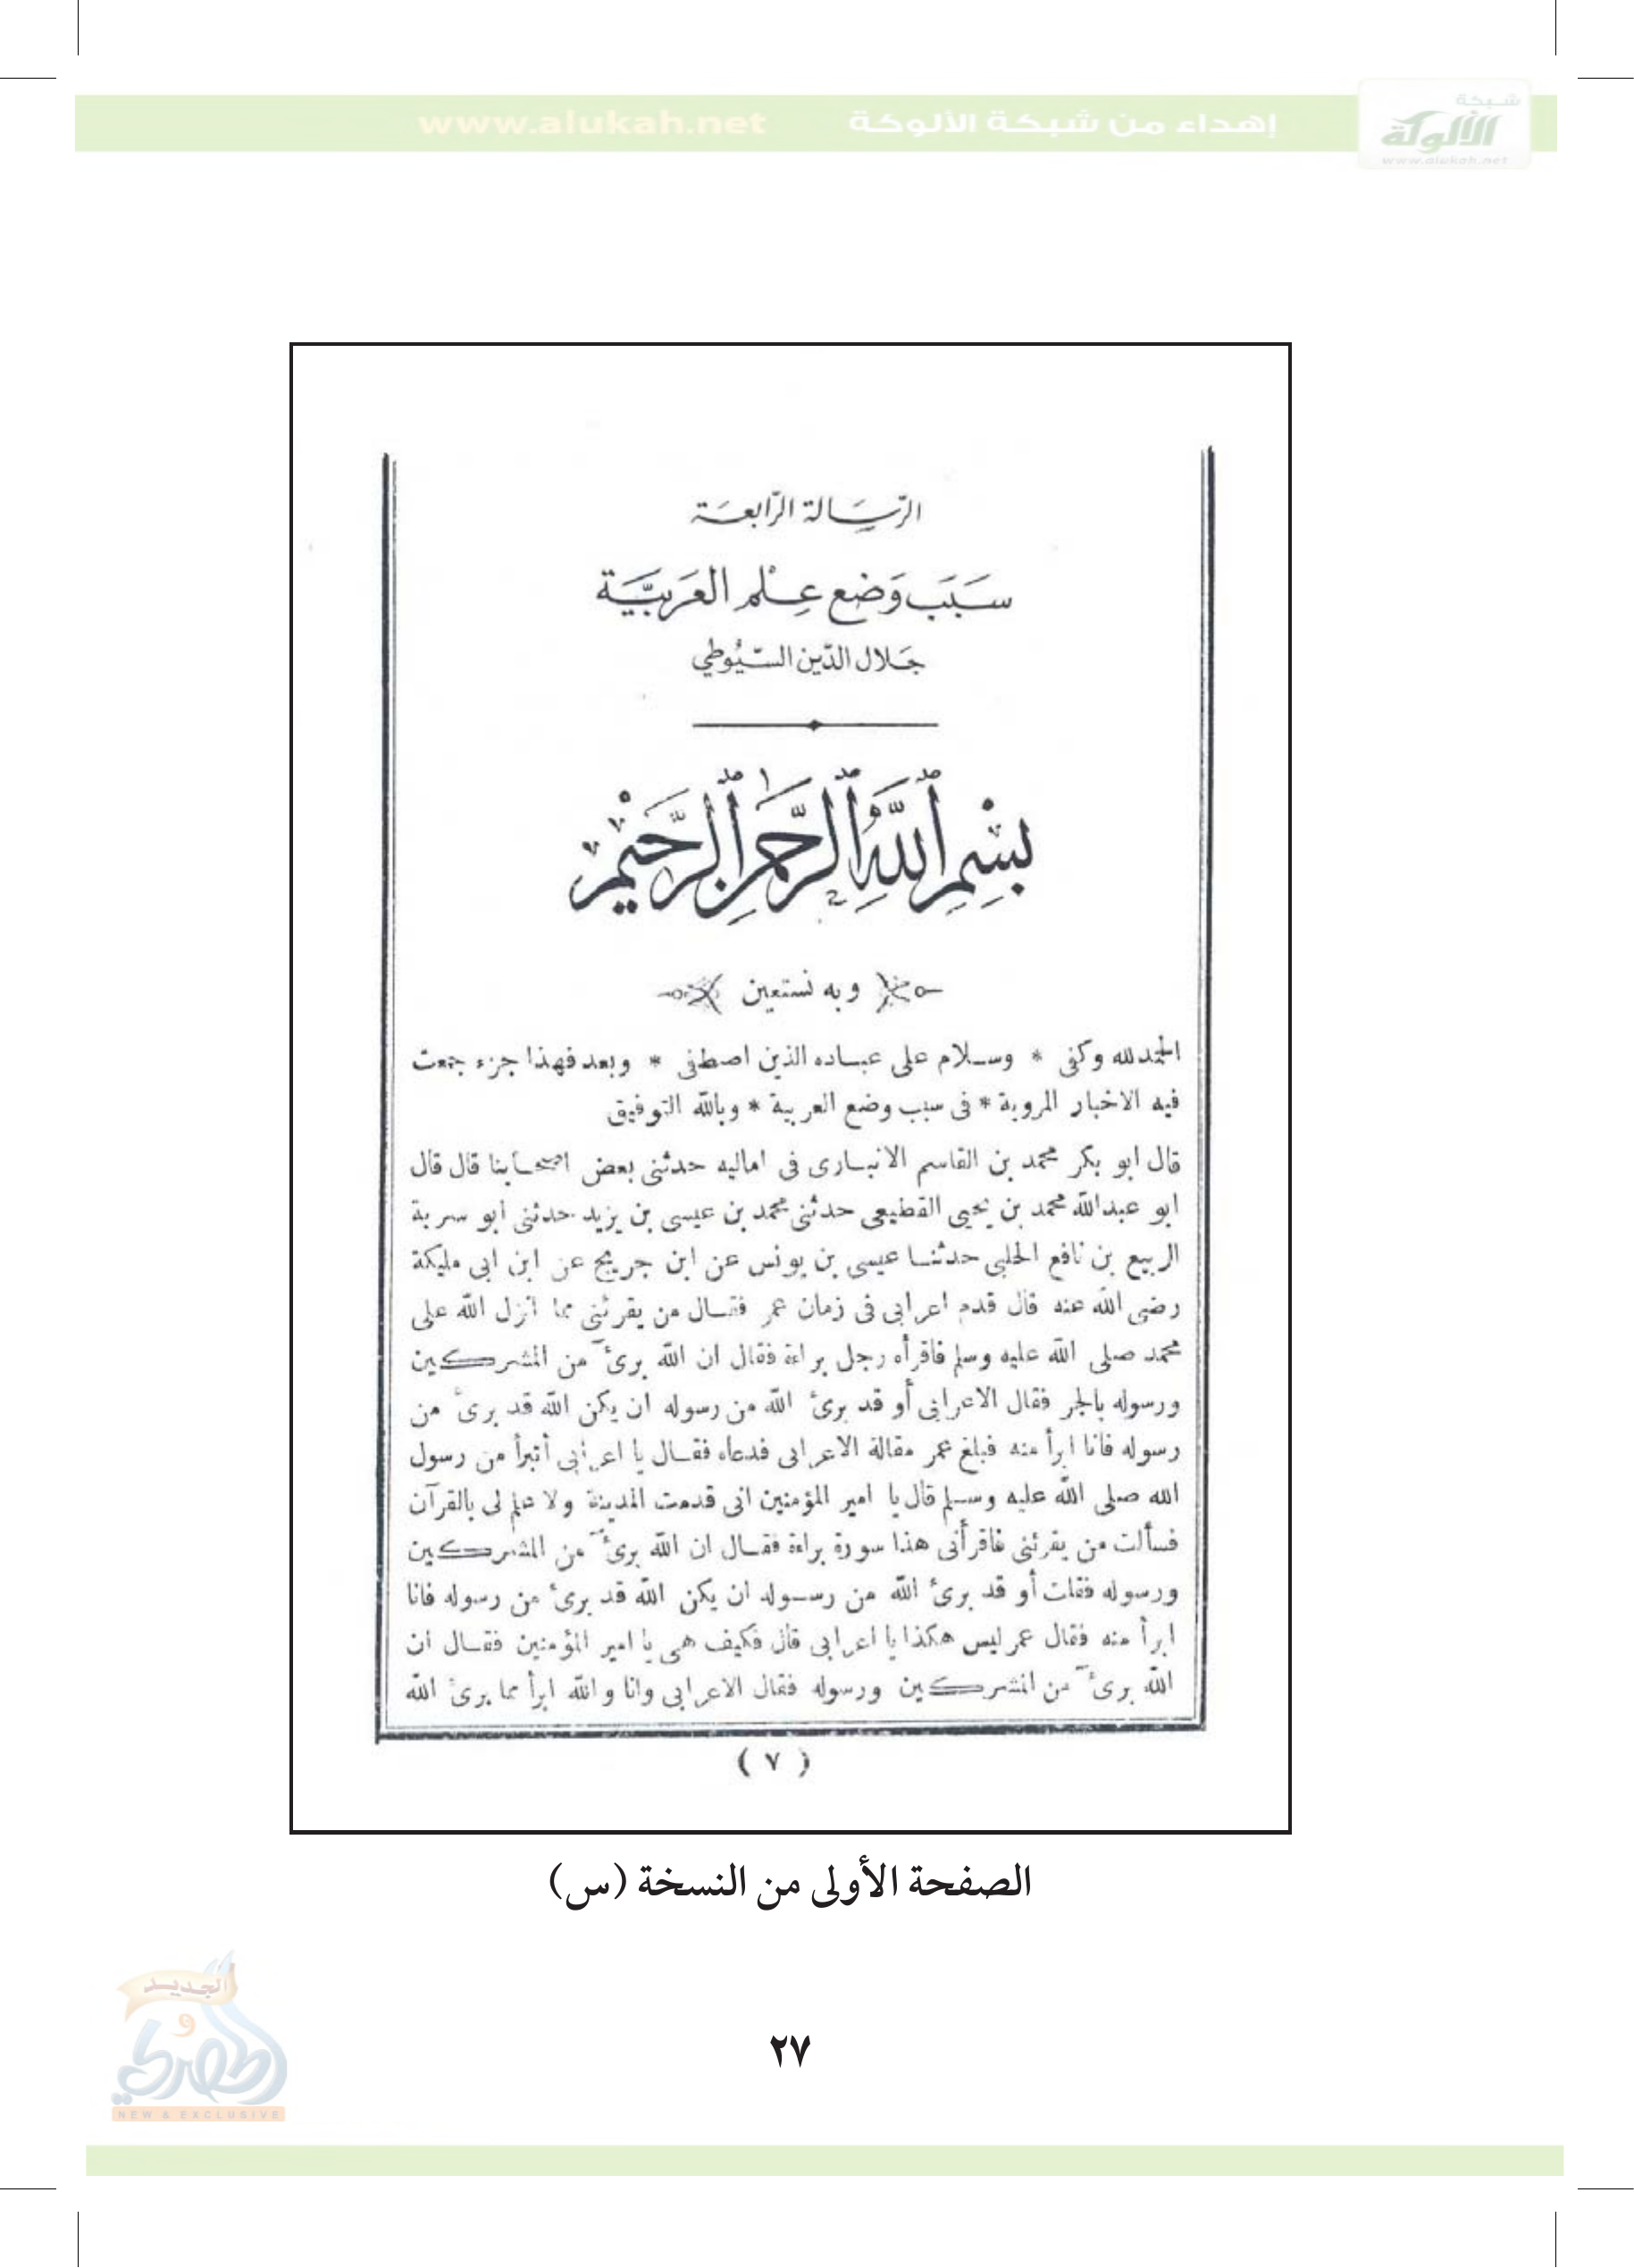 إهداء من شبكة الألوكة www.alukah.net
شبكة
الألوكة
www.alukah.net
الرّسَالة الرّابعَة
سَبَب وَضع عِلْم العَربيَّة
جَلال الدّين السّيُوطي
بِسْمِ ٱللَّهِ ٱلرَّحْمَٰنِ ٱلرَّحِيْمِ
وبه نستعين
الحمد لله وكفى * وسلام على عباده الذين اصطفى * وبعد فهذا جزء جمعت
فيه الاخبار المروية * فى سبب وضع العربية * وبالله التوفيق
قال ابو بكر محمد بن القاسم الانبارى فى اماليه حدثنى بعض اصحابنا قال قال
ابو عبدالله محمد بن يحيى القطيعى حدثنى محمد بن عيسى بن يزيد حدثنى أبو سربة
الربيع بن نافع الحلبى حدثنا عيسى بن يونس عن ابن جريج عن ابن ابى مليكة
رضى الله عنه قال قدم اعرابى فى زمان عمر فقال من يقرئنى مما انزل الله على
محمد صلى الله عليه وسلم فاقرأه رجل براءة فقال ان الله برئ من المشركين
ورسوله بالجر فقال الاعرابى أو قد برئ الله من رسوله ان يكن الله قد برئ من
رسوله فانا ابرأ منه فبلغ عمر مقالة الاعرابى فدعاه فقال يا اعرابى أتبرأ من رسول
الله صلى الله عليه وسلم قال يا امير المؤمنين انى قدمت المدينة ولا علم لى بالقرآن
فسألت من يقرئنى فاقرأنى هذا سورة براءة فقال ان الله برئ من المشركين
ورسوله فقلت أو قد برئ الله من رسوله ان يكن الله قد برئ من رسوله فانا
ابرأ منه فقال عمر ليس هكذا يا اعرابى قال فكيف هى يا امير المؤمنين فقال ان
الله برئ من المشركين ورسوله فقال الاعرابى وانا والله ابرأ مما برئ الله
( ٧ )
الصفحة الأولى من النسخة (س)
الجديد
و
الحصري
NEW & EXCLUSIVE
٢٧